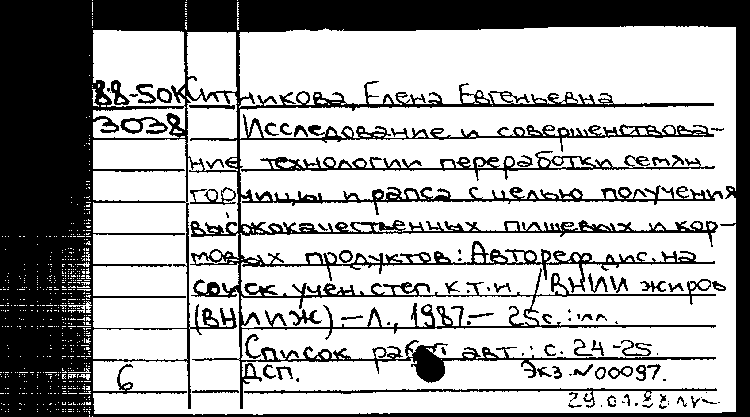 88-50К Ситникова, Елена Евгеньевна
3038 Исследование и совершенствова-
ние технологии переработки семян
горчицы и рапса с целью получения
высококачественных пищевых и кор-
мовых продуктов: Автореф. дис. на
соиск. учен. степ. к.т.н. / ВНИИ жиров
(ВНИИЖ). - Л., 1987. - 25с.: ил.
Список работ авт.: с. 24-25.
6 ДСП. Экз. №00097.
29.01.88